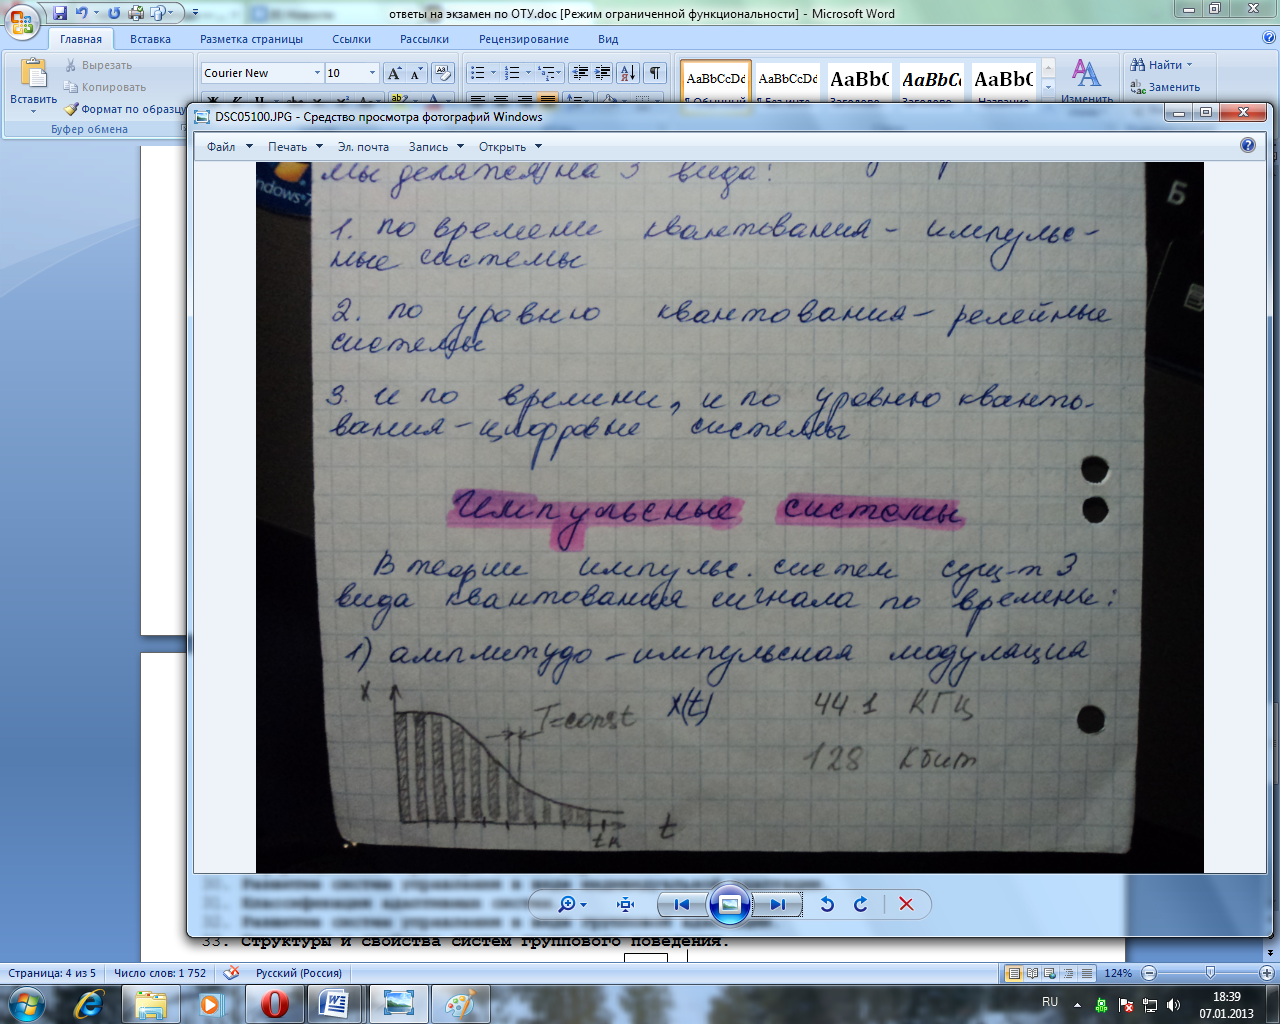 ответы на экзамен по ОТУ.doc [Режим ограниченной функциональности] - Microsoft Word
Главная Вставка Разметка страницы Ссылки Рассылки Рецензирование Вид
Вставить
Вырезать
Копировать
Формат по образцу
Буфер обмена
Courier New 10
AaBbCcDc AaBbCcDc AaBbC AaBbCc AaBbC
Изменить
Найти
Заменить
DSC05100.JPG - Средство просмотра фотографий Windows
Файл Печать Эл. почта Запись Открыть
мы делятся на 3 вида:
1. по времени квантования - импульс-
ные системы
2. по уровню квантования - релейные
системы
3. и по времени, и по уровню кванто-
вания - цифровые системы
Импульсные системы
В теории импульс. систем сущ-т 3
вида квантования сигнала по времени:
1) амплитудо - импульсная модуляция
x T=const x(t) 44.1 КГц
128 Кбит
tк t
Б
31. Классификация адаптивных систем.
33. Структуры и свойства систем группового поведения.
Страница: 4 из 5 Число слов: 1 752 Русский (Россия) 124%
RU 18:39
07.01.2013